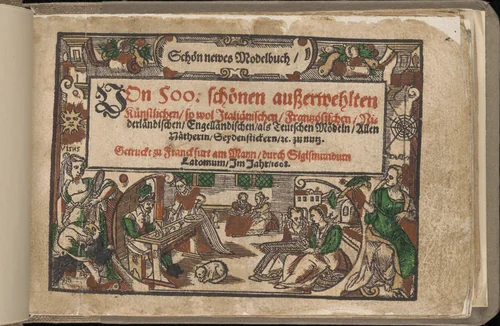 Schön newes Modelbuch /
Von 500. schönen außerwehlten
Künstlichen / so wol Italiänischen / Frantzösischen / Ni-
derländischen / Engelländischen / als Teutschen Mödeln / Allen
Nätherin / Seydenstickern / ꝛc. zu nutz.
Getruckt zu Franckfurt am Mayn / durch Sigismundum
Latomum / Im Jahr / 1608.